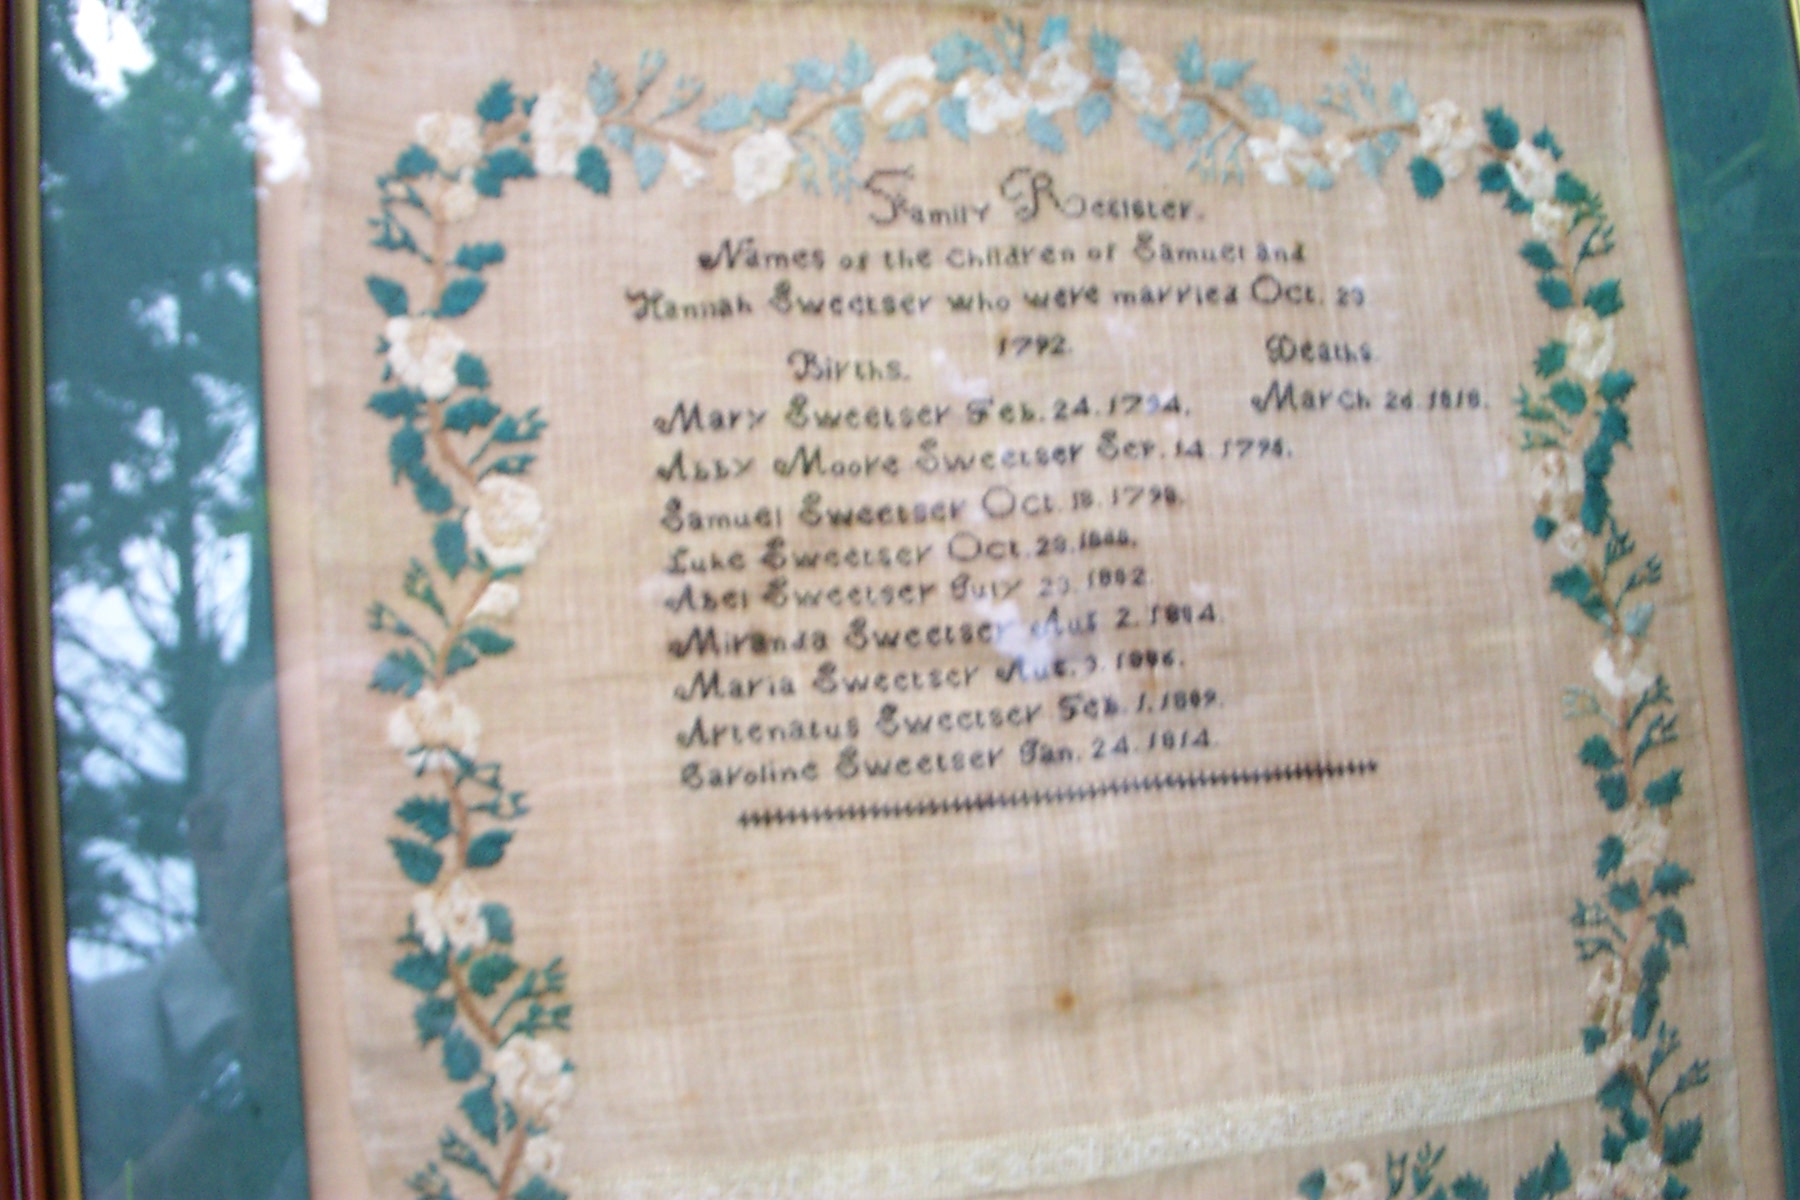 Family Register.
Names of the Children of Samuel and
Hannah Sweetser who were married Oct. 23
1792.
Births. Deaths.
Mary Sweetser Feb. 24. 1794. March 26. 1818.
Abby Moore Sweetser Sep. 14. 1796.
Samuel Sweetser Oct. 18. 1798.
Luke Sweetser Oct. 28. 1800.
Abel Sweetser July 23. 1802.
Miranda Sweetser Aug 2. 1804.
Maria Sweetser Aug. 3. 1806.
Artenatus Sweetser Feb. 1. 1809.
Caroline Sweetser Jan. 24. 1814.